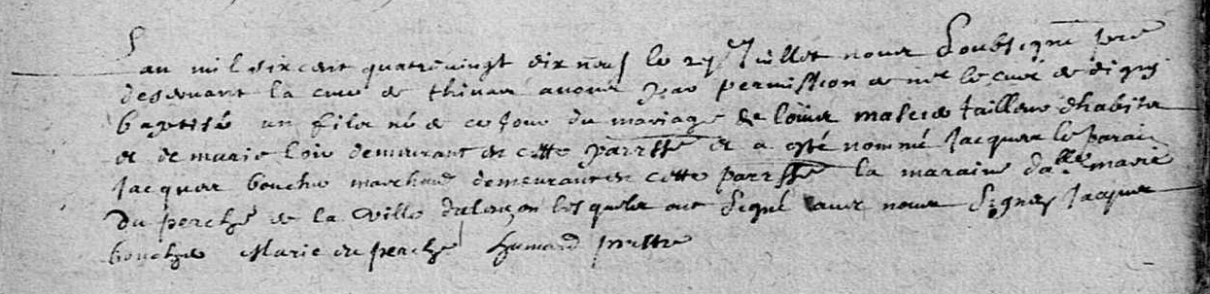 L'an mil six cent quatrevingt dix neuf le Juillet nous Soubsigné pre
deservant la cure de thivars avons par permission de mr le curé de digny
baptisé un fils né de ce jour du mariage de louis tailleur d'habits
et de marie loir demeurant en cette parrsse et a esté nommé Jacques le parain
Jacques bouche marchand demeurant en cette parrsse la maraine dalle marie
du perche de la ville dalençon lesquels ont signé avec nous Signes Jacques
bouche Marie du perche humard prestre